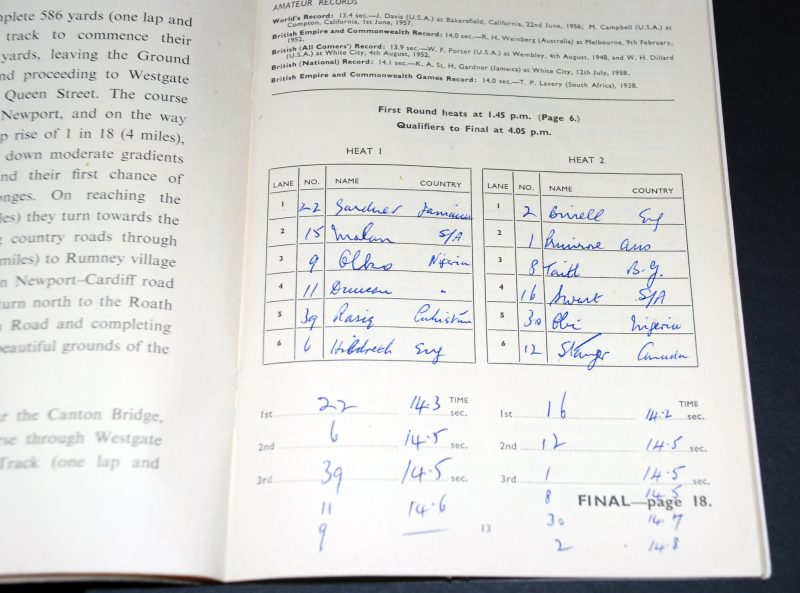 mplete 586 yards (one lap and
track to commence their
yards, leaving the Ground
nd proceeding to Westgate
Queen Street. The course
Newport, and on the way
p rise of 1 in 18 (4 miles),
down moderate gradients
nd their first chance of
onges. On reaching the
les) they turn towards the
g country roads through
miles) to Rumney village
n Newport–Cardiff road
turn north to the Roath
n Road and completing
beautiful grounds of the
r the Canton Bridge,
rse through Westgate
Track (one lap and
AMATEUR RECORDS
World's Record: 13.4 sec.—J. Davis (U.S.A.) at Bakersfield, California, 22nd June, 1956; M. Campbell (U.S.A.) at
Compton, California, 1st June, 1957.
British Empire and Commonwealth Record: 14.0 sec.—R. H. Weinberg (Australia) at Melbourne, 9th February,
1952.
British (All Comers') Record: 13.9 sec.—W. F. Porter (U.S.A.) at Wembley, 4th August, 1948, and W. H. Dillard
(U.S.A.) at White City, 4th August, 1952.
British (National) Record: 14.1 sec.—K. A. St. H. Gardner (Jamaica) at White City, 12th July, 1958.
British Empire and Commonwealth Games Record: 14.0 sec.—T. P. Lavery (South Africa), 1938.
First Round heats at 1.45 p.m. (Page 6.)
Qualifiers to Final at 4.05 p.m.
HEAT 1
LANE NO. NAME COUNTRY
1 22 Gardner Jamaica
2 15 Malan S/A
3 9 Nigeria
4 11 Duncan "
5 39 Raziq
6 6 Hildreth Eng
1st 22 14.3 TIME sec.
2nd 6 14.5 sec.
3rd 39 14.5 sec.
11 14.6
9 —
HEAT 2
LANE NO. NAME COUNTRY
1 2 Birrell Eng
2 1 Primrose Aus
3 8 Taitt B.G.
4 16 Swart S/A
5 30 Obi Nigeria
6 12 Stanger Canada
1st 16 14.2 TIME sec.
2nd 12 14.5 sec.
3rd 1 14.5 sec.
8 14.5
FINAL—page 18.
30 14.7
2 14.8
13